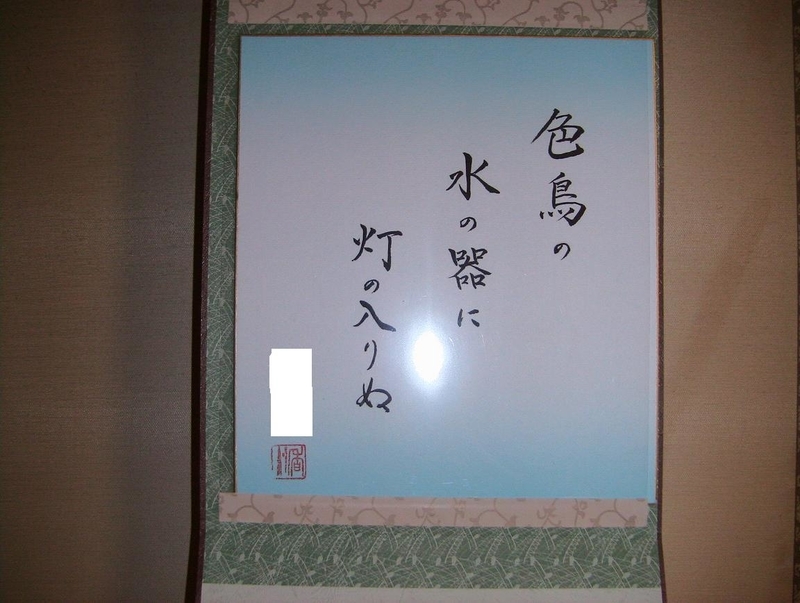 色鳥の
水の器に
灯の入りぬ